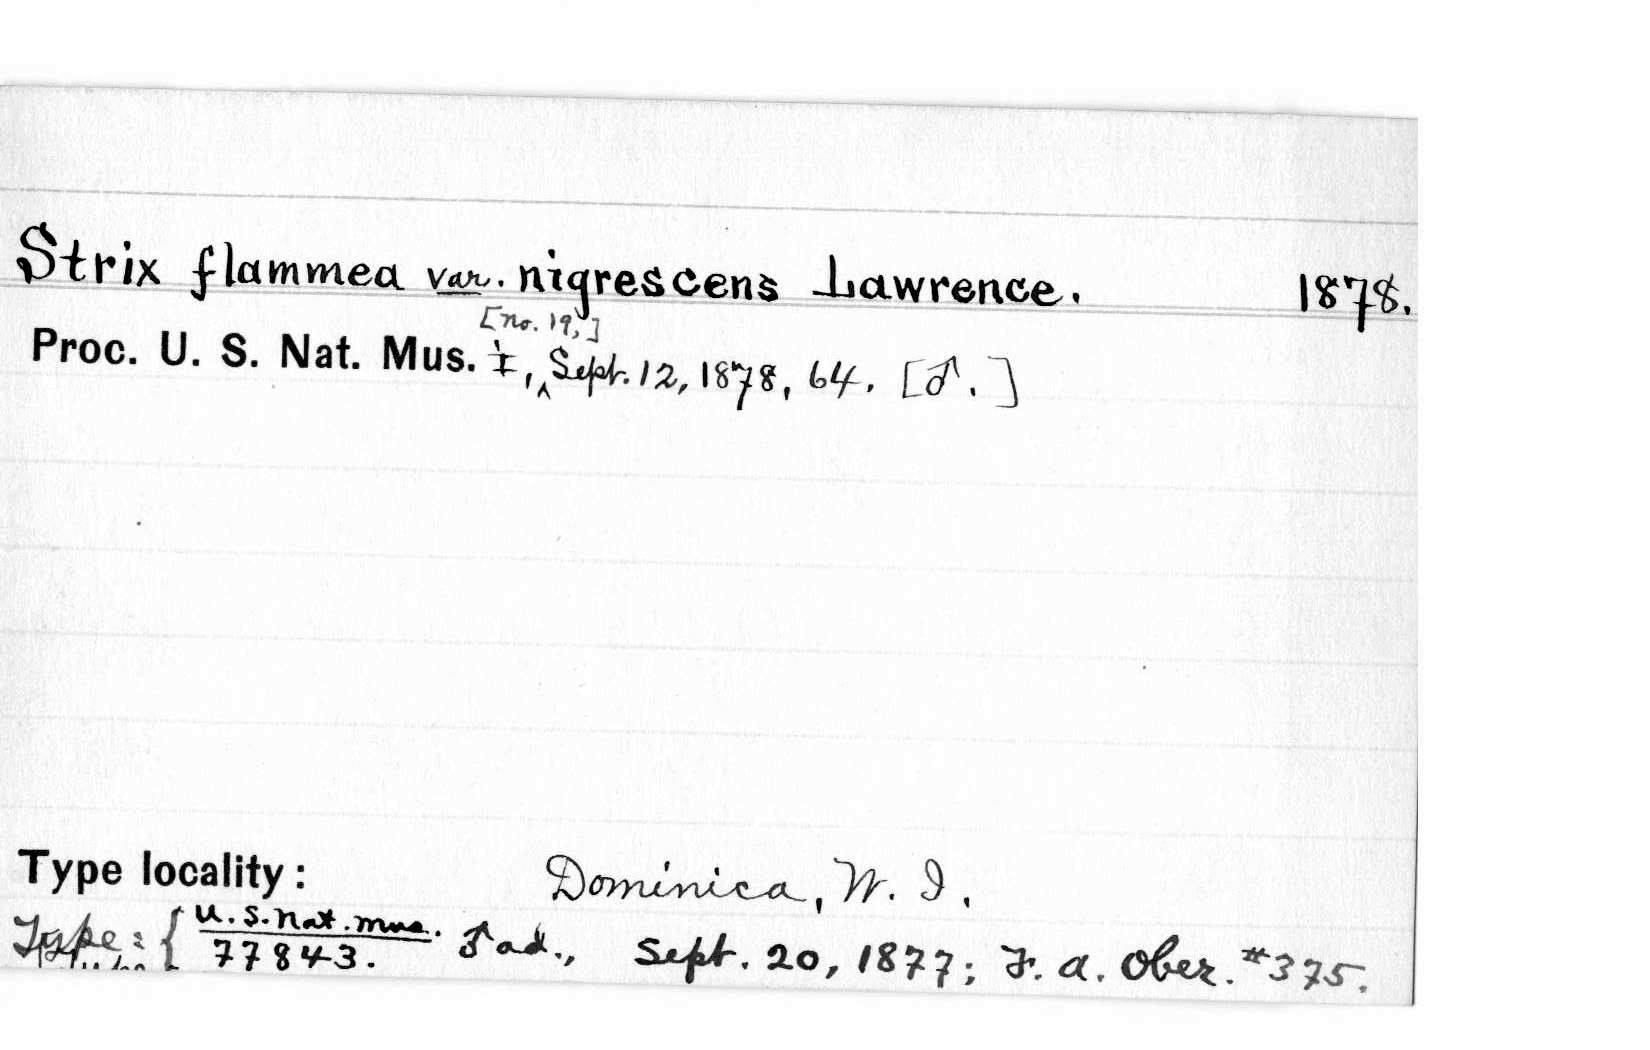 Strix flammea var. nigrescens Lawrence. 1878.
[no. 19,]
Proc. U. S. Nat. Mus. I, ^ Sept. 12, 1878, 64. [♂.]
Type locality: Dominica, W. I.
Type: { U.S. Nat. Mus. ♂ ad., Sept. 20, 1877; F. A. Ober. #375.
77843.